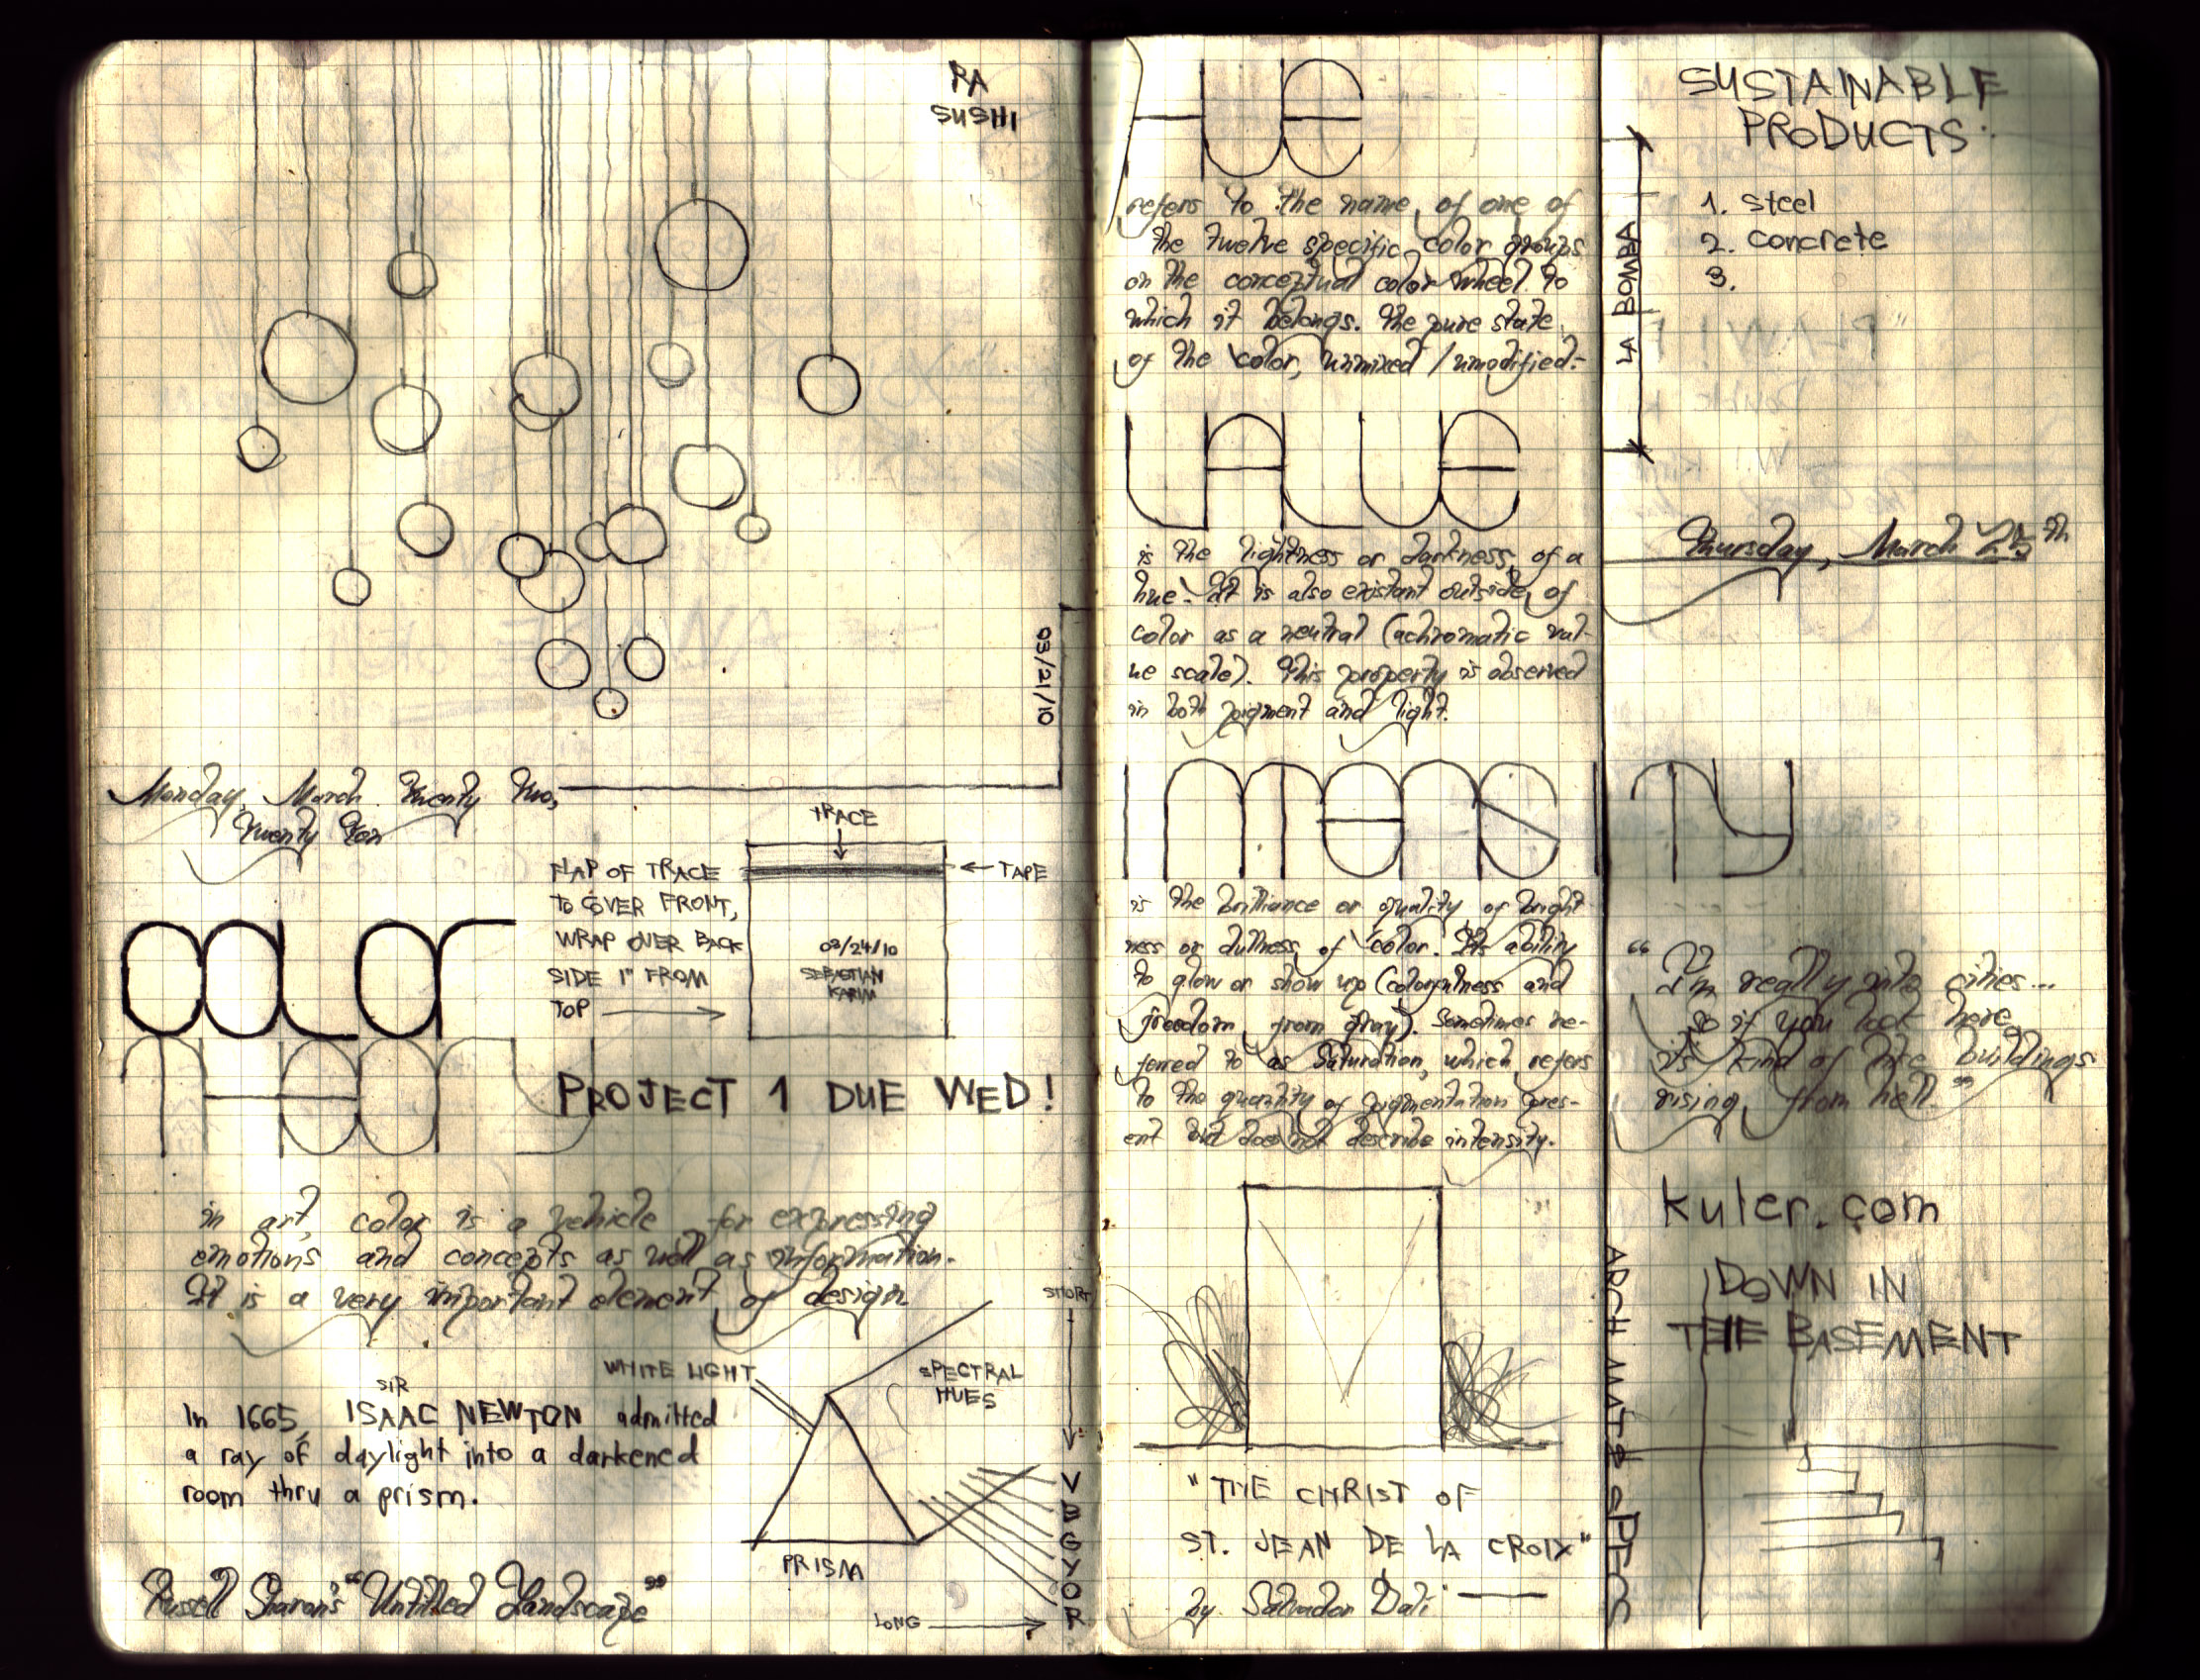 RA
SUSHI
03/21/10
Monday, March Twenty Two,
Twenty Ten
TRACE
FLAP OF TRACE
TO COVER FRONT,
WRAP OVER BACK
SIDE 1" FROM
TOP
TAPE
03/24/10
SEBASTIAN
KARIM
COLOR
THEORY
PROJECT 1 DUE WED!
in art, color is a vehicle for expressing
emotions and concepts as well as information.
It is a very important element of design
SIR
In 1665, ISAAC NEWTON admitted
a ray of daylight into a darkened
room thru a prism.
WHITE LIGHT
SPECTRAL
HUES
SHORT
V
B
G
Y
O
R
PRISM
LONG
Russell Sharon's "Untitled Landscape"
HUE
refers to the name of one of
the twelve specific color groups
on the conceptual color wheel to
which it belongs. The pure state
of the color, unmixed / unmodified.
VALUE
is the lightness or darkness of a
hue. It is also existant outside of
color as a neutral (achromatic val-
ue scale). This property is observed
in both pigment and light.
INTENSITY
is the brilliance or quality of bright
ness or dullness of color. Its ability
to glow or show up (colorfulness and
freedom from gray). Sometimes re-
ferred to as Saturation, which refers
to the quantity of pigmentation pres-
ent but does not describe intensity.
"THE CHRIST OF
ST. JEAN DE LA CROIX"
by Salvador Dali
LA BOWBA
SUSTAINABLE
PRODUCTS:
1. steel
2. concrete
3.
Thursday, March 25th
"I'm really into cities...
so if you look here
it's kind of like buildings
rising from hell."
kuler.com
DOWN IN
THE BASEMENT
ARCH MAT & SPECS